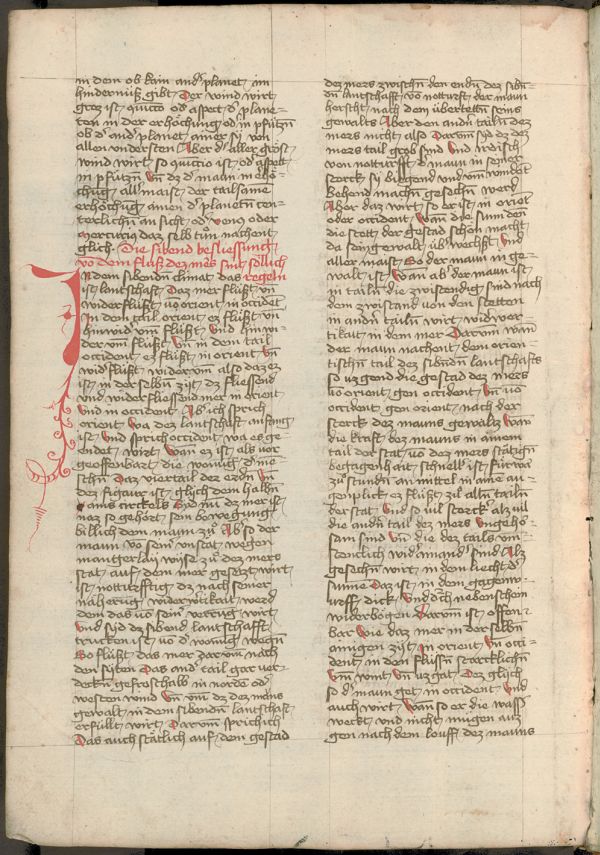 in dem ob kain andr planet im
hindernúß gibt Der wind wirt
groz ist quicto od aspect dr plane-
ten in der erhöchung od in pfúczn
ob dr andr planet ainer sÿ von
allen understen Aber dr aller gröst
wind wirt so quicto ist od aspect
in pfúczn vn dz dr maun in erhö-
chug all maist der tailsame
erhöchug ainen dr planetn con-
terlichn an sicht odr venus oder
mercurius daz selb tun nachent
glich Die sibend besliessung
vo dem fluß dez meres sint söllich
In dem sibenden climat das regeln
ist lantschaft Daz mer flúßt vn
widerflúßt vo orient in occident
In dem tail orient ez flúßt vn
hinwid vm flúßt Und hinwi-
der vm flúßt vn in dem tail
occident ez flúßt in orient vn
wid flúßt widervm also daz ez
ist in derselbn zÿt dz fliessend
vnd widerfliessend mer in orient
Und in occident Ab ich sprich
orient wa dez lantschaft anfang
ist Und sprich occident wa es ge-
endet wirt Wan ez ist als vor
geoffenbart die wonug dr me-
schn Daz viertail der erdn vn
dez figaur ist glich dem halbn
ains circkels Und nu dz mer ist
naz so gehört sein bewegung
billich dem maun zu Ab so der
maun vo seinr vnstat wegen
mangerlaÿ wise zu dez mers
stat auf dem mer gesetzt wirt
ist notturftig dz nach seiner
näherug widerwörckau werd
dem das vo seinr verrug wirt
Und syd dz sibend lantschafft
trucken ist vo dr wonug wegn
So flúßt das mer darvm nach
den sÿten Das andr tail gar ver-
deckn gefroshalb in norde odr
westen wind Vn vm dz dez mans
gewalt in dem sibendn lantschaft
erfúllt wirt Darvm sprichich
Das auch stätlich auf dem gestad
dez mers zwischn den endn dez sibn-
dn lantschafft vo notturft der maun
herscht nach dem úbertailn seins
gewalts Aber den andn tailn dez
mers nicht also Darvm syd dz dez
mers tail grob sind Und irdisch
von notturfft dr maun in seiner
sterck sÿ biegend und vm wendet
Behend machn gesechn werd
Aber daz wirt so er ist in oriet
oder occident Wan die sum den
die stett der gestad schon macht
da seingewalt úbwechst Und
aller maist So der maun in ge-
walt ist Wan ab der maun ist
in tailn die zwiscendig sind nach
dem zwistand von den stetten
in andn tailn wirt widwer-
tikait in dem mer Darvm wan
der maun nachent dem orien-
tischn tail dez sibndn lantschafts
so uzgend die gestad dez mers
vo orient gen occident Vn vo
occident gen orient nach der
sterck dez mauns gewaltz Wan
die kraft dez mauns in ainem
tail der stat vo dez mers stätign
begagenhait schnell ist fúrwa
zu stundn an mittel in aine au-
genplick ez flúßt zu alln tailn
der stat Und so uil sterck als uil
die andn tail dez mers ungehö-
sam sind Vn die dez tails vm
fdentlich widrmand sind Alz
gesechn wirt in dem liecht dr
sunne Daz ist in dem gagenw-
urff dick Und doch nebenschein
widerbögen Darvm ist offen-
bar Wie daz mer in derselbn
ainigen zÿt In orient Vn occi-
dent in den flússn starcklichn
vm wint Vn uz gat Dez glich
so dr maun get in occident Und
auch wirt Wan so er die wass
weckt und nicht múgen auz
gen nach dem louff dez mauns